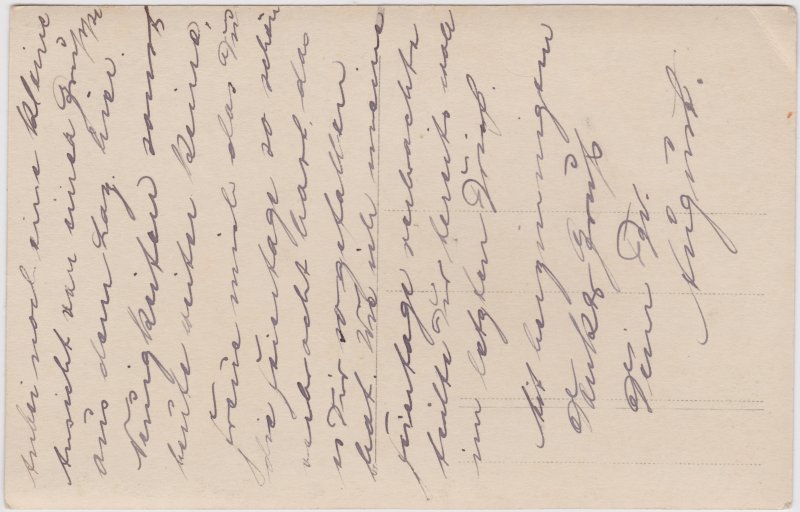 Anbei noch eine kleine
Ansicht von einer Gruppe
aus dem Laz. hier.
Neuigkeiten sonst
heute weiter keine,
freue mich das Du
die Feiertage so schön
verbracht hast, das
es Dir so gefallen
hat. Wie ich meine
Feiertage verbrachte
teilte Dir bereits mal
im letzten Brief.
Mit herzinnigem
Gruß
Dein
August.